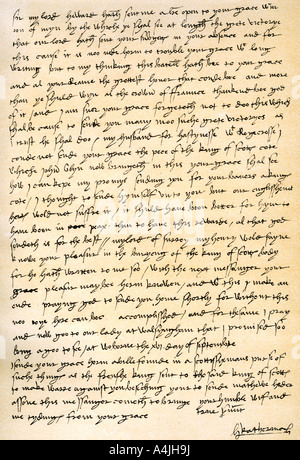 Sir my lord haward hath sent me a lre open to your grace within
oon of myn by the whiche ye shal see at length the grete victorye
that our lord hath sent your subgetts in your absence and for
this cause it is noo nede herin to trouble your grace with long
writing but to my thinking this batell hath bee to your grace
and al your reame the grettest honor that coude bee and more
than ye shuld wyn al the crown of fraunce thanked bee god
of it and I am suer your grace forgeteth not to doo this which
shal be cause to sende you many moo suche grete victoryes as
I trust he shal doo / my husband for hastynesse with Rogecrosse I
coude not sende your grace the pece of the king of Scotts cote
whiche John Glyn now bringeth in this your grace shal see
how I can kepe my promys sending you for your baners a kings
cote / I thought to sende hymself unto you but our englishmens
herts wold not suffre it / it shuld have been better for hym to
have been in peax than to have this rewarde / al that god
sendeth is for the best / my lord of Surrey my henry wold fayne
knowe your pleasur in the buryeng of the king of Scotts body
for he hath writen to me soo / with the next messanger your
grace pleasur may bee herin knowen / and with this I make an
ende praying god to sende you home shortly for without this
noo joye here can bee accomplisshed / and for the same I pray
and now goo to our lady at walsyngham that I promised soo
long agoo to see / at woborne the xvj day of septembre
I sende your grace herin a bille founde in a Scottishemans purse of
suche things as the frenshe king sent to the said king of Scotts
to make warre against you beseching your to sende mathewe heder
assone this messanger cometh to bringe
me tydings from your grace
your humble wif and
true servant
Katherine
alamy
A4JH9J